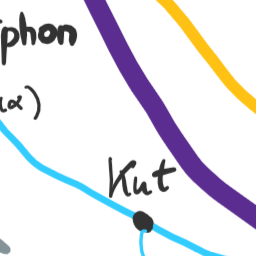 phon
α)
Kut